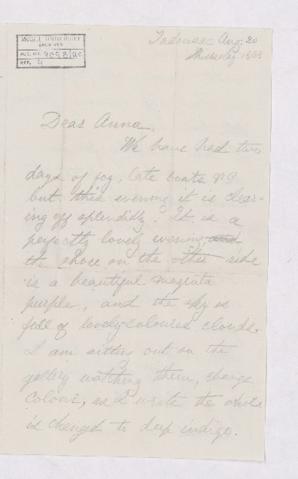 McGILL UNIVERSITY
ARCHIVES
ACC. NO.
REF. 4
Tadousac Aug. 20
Thursday
Dear Anna,
We have had two
days of fog, late boats &c
but this evening it is clear-
ing off splendidly. It is a
perfectly lovely evening, and
the shore on the other side
is a beautiful magenta
purple, and the sky is
full of lovely coloured clouds.
I am sitting out on the
gallery watching them change
colour, as I write the shore
is changed to deep indigo.